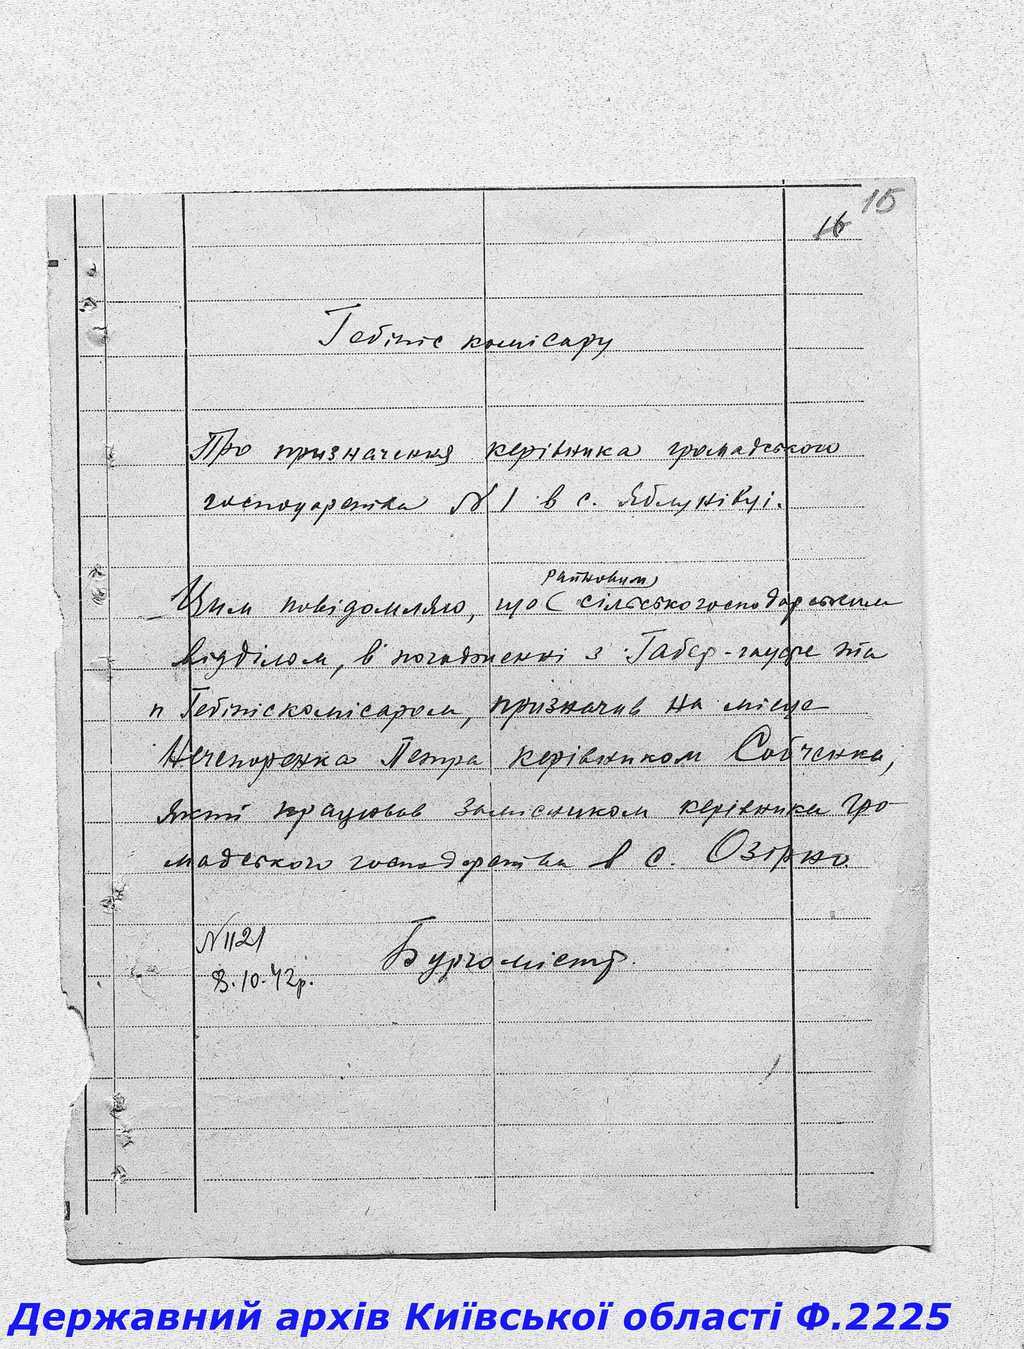 15
16
Гебітс комісару
Про призначення керівника громадського
господарства N 1 в с. Яблунівці.
районовим
Цим повідомляю, що сільськогосподарським
відділом, в погодженні з Габер-гауфе та
п Гебітскомісаром, призначив на місце
Нечепоренка Петра керівником Собченка,
який працював замісником керівника гро-
мадського господарства в с. Озірно.
N 1121
8.10.42р.
Бургомістр.
Державний архів Київської області Ф.2225